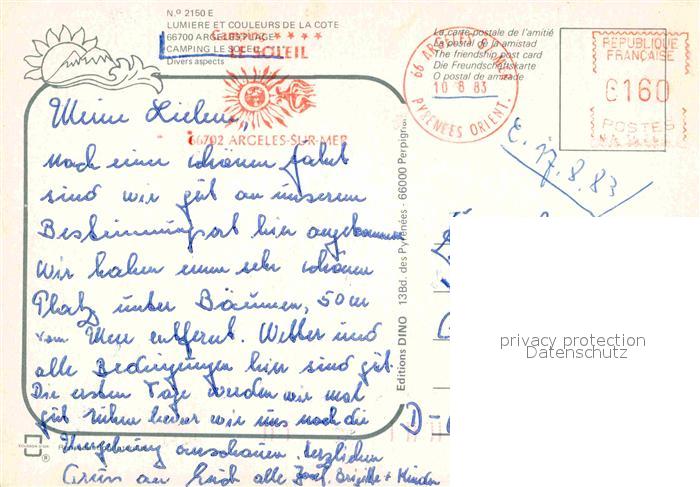 N.º 2150 E
LUMIERE ET COULEURS DE LA COTE
66700 ARGELES PLAGE
CAMPING LE SOLEIL
Divers aspects
CAMPING ★★★★
LE SOLEIL
66702 ARGELES-SUR-MER
La carte postale de l'amitié
La postal de la amistad
The friendship post card
Die Freundschaftskarte
O postal de amizade
66 ARGELES S/ MER
10 8 83
PYRENEES ORIENT.
REPUBLIQUE
FRANÇAISE
0160
POSTES
E. 17.8.83
Meine Lieben,
Nach einer schönen Fahrt
sind wir gut an unserem
Bestimmungsort hier angekommen
Wir haben einen sehr schönen
Platz unter Bäumen, 50 m
vom Meer entfernt. Wetter und
alle Bedingungen hier sind gut.
Die ersten Tage werden wir mal
gut ruhen bevor wir uns nach die
Umgebung anschauen. Herzlichen
Grüss an Euch alle Josef, Brigitte + Kinder
Editions DINO 13Bd. des Pyrénées - 66000 Perpignan
D-
privacy protection
Datenschutz